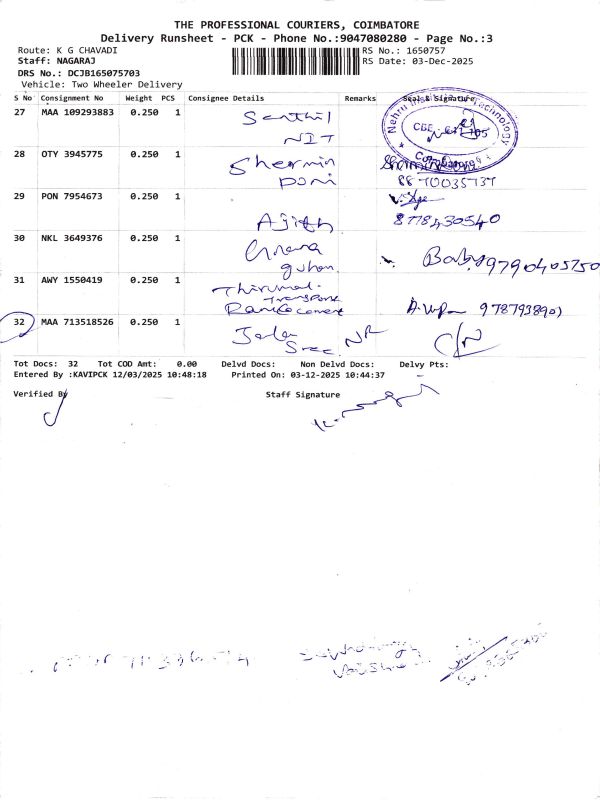 THE PROFESSIONAL COURIERS, COIMBATORE
Delivery Runsheet - PCK - Phone No.:9047080280 - Page No.:3
Route: K G CHAVADI
RS No.: 1650757
Staff: NAGARAJ
RS Date: 03-Dec-2025
DRS No.: DCJB165075703
Vehicle: Two Wheeler Delivery
S No Consignment No Weight PCS Consignee Details Remarks Seal & Signature
27 MAA 109293883 0.250 1 Senthil
NIT
Nehru Technology
CBE
28 OTY 3945775 0.250 1 Shermin
Doni
8870035737
29 PON 7954673 0.250 1 Ajith
8778430540
30 NKL 3649376 0.250 1 Gnana
guhan
Baby 9790405750
31 AWY 1550419 0.250 1 Thirumal
Transport
Ramco cement
9787938901
32 MAA 713518526 0.250 1
Sree NR
Tot Docs: 32 Tot COD Amt: 0.00 Delvd Docs: Non Delvd Docs: Delvy Pts:
Entered By :KAVIPCK 12/03/2025 10:48:18 Printed On: 03-12-2025 10:44:37
Verified By
Staff Signature